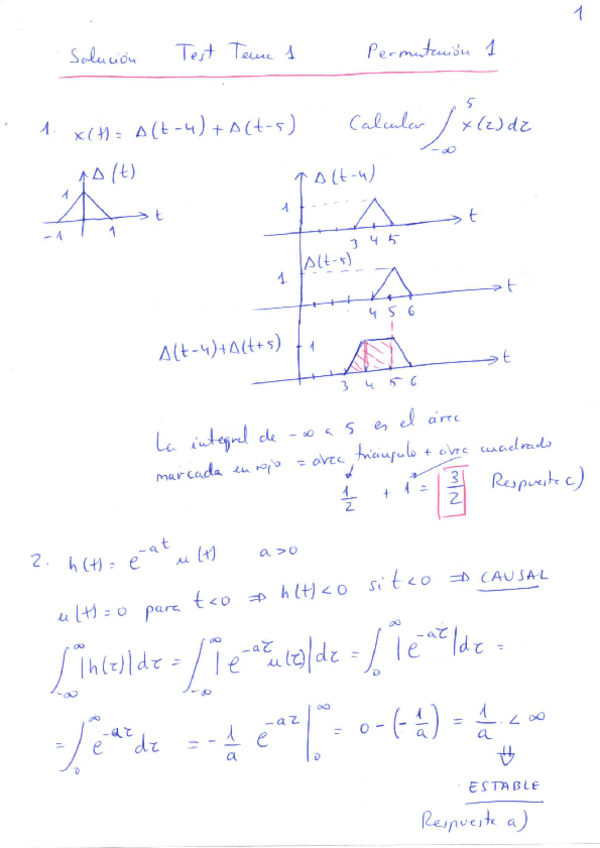 1
Solución Test Tema 1 Permutación 1
1. x(t) = Δ(t-4) + Δ(t-5) Calcular ∫_{-∞}^{5} x(τ)dτ
Δ(t)
1
-1 1 t
Δ(t-4)
1
3 4 5 t
Δ(t-5)
1
4 5 6 t
Δ(t-4)+Δ(t+5) 1
3 4 5 6 t
La integral de -∞ a 5 es el área
marcada en rojo = área triángulo + área cuadrado
1/2 + 1 = 3/2 Respuesta c)
2. h(t) = e^{-at} u(t) a>0
u(t)=0 para t<0 ⇒ h(t)<0 si t<0 ⇒ CAUSAL
∫_{-∞}^{∞} |h(τ)|dτ = ∫_{-∞}^{∞} |e^{-aτ} u(τ)|dτ = ∫_{0}^{∞} |e^{-aτ}|dτ =
= ∫_{0}^{∞} e^{-aτ} dτ = -1/a e^{-aτ} |_{0}^{∞} = 0-(-1/a) = 1/a < ∞
⇓
ESTABLE
Respuesta a)